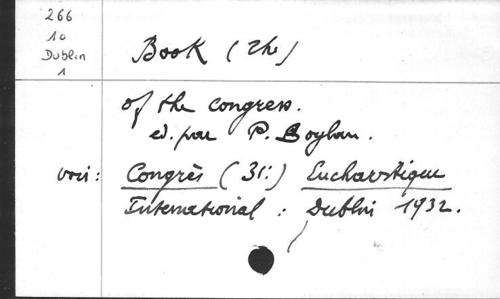 266
10
Dublin
1
Book (The)
of the congress.
ed. par P. Boylan.
voir: Congrès (31:) Eucharistique
International : Dublin 1932.